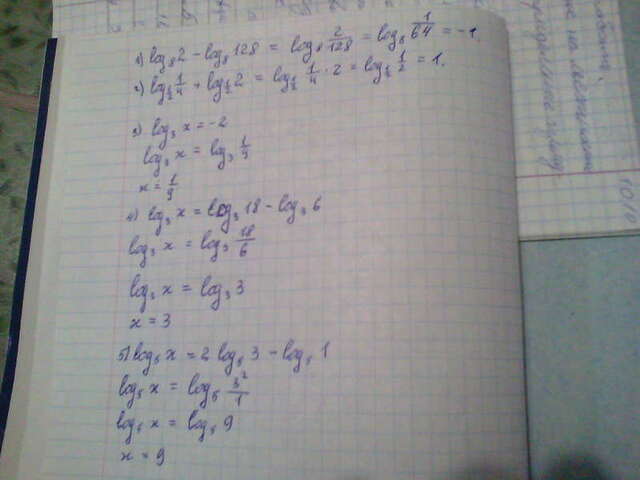 1) log₈2 - log₈128 = log₈ 2/128 = log₈ 1/64 = -1
2) log½ 1/4 + log½ 2 = log½ 1/4 · 2 = log½ 1/2 = 1.
3) log₃ x = -2
log₃ x = log₃ 1/9
x = 1/9
4) log₃ x = log₃ 18 - log₃ 6
log₃ x = log₃ 18/6
log₃ x = log₃ 3
x = 3
5) log₅ x = 2 log₅ 3 - log₅ 1
log₅ x = log₅ 3²/1
log₅ x = log₅ 9
x = 9